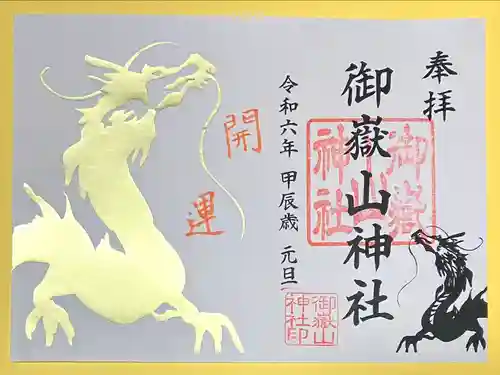 奉拝
御嶽山神社
御嶽山神社
令和六年 甲辰歳 元旦
御嶽山
神社印
開運